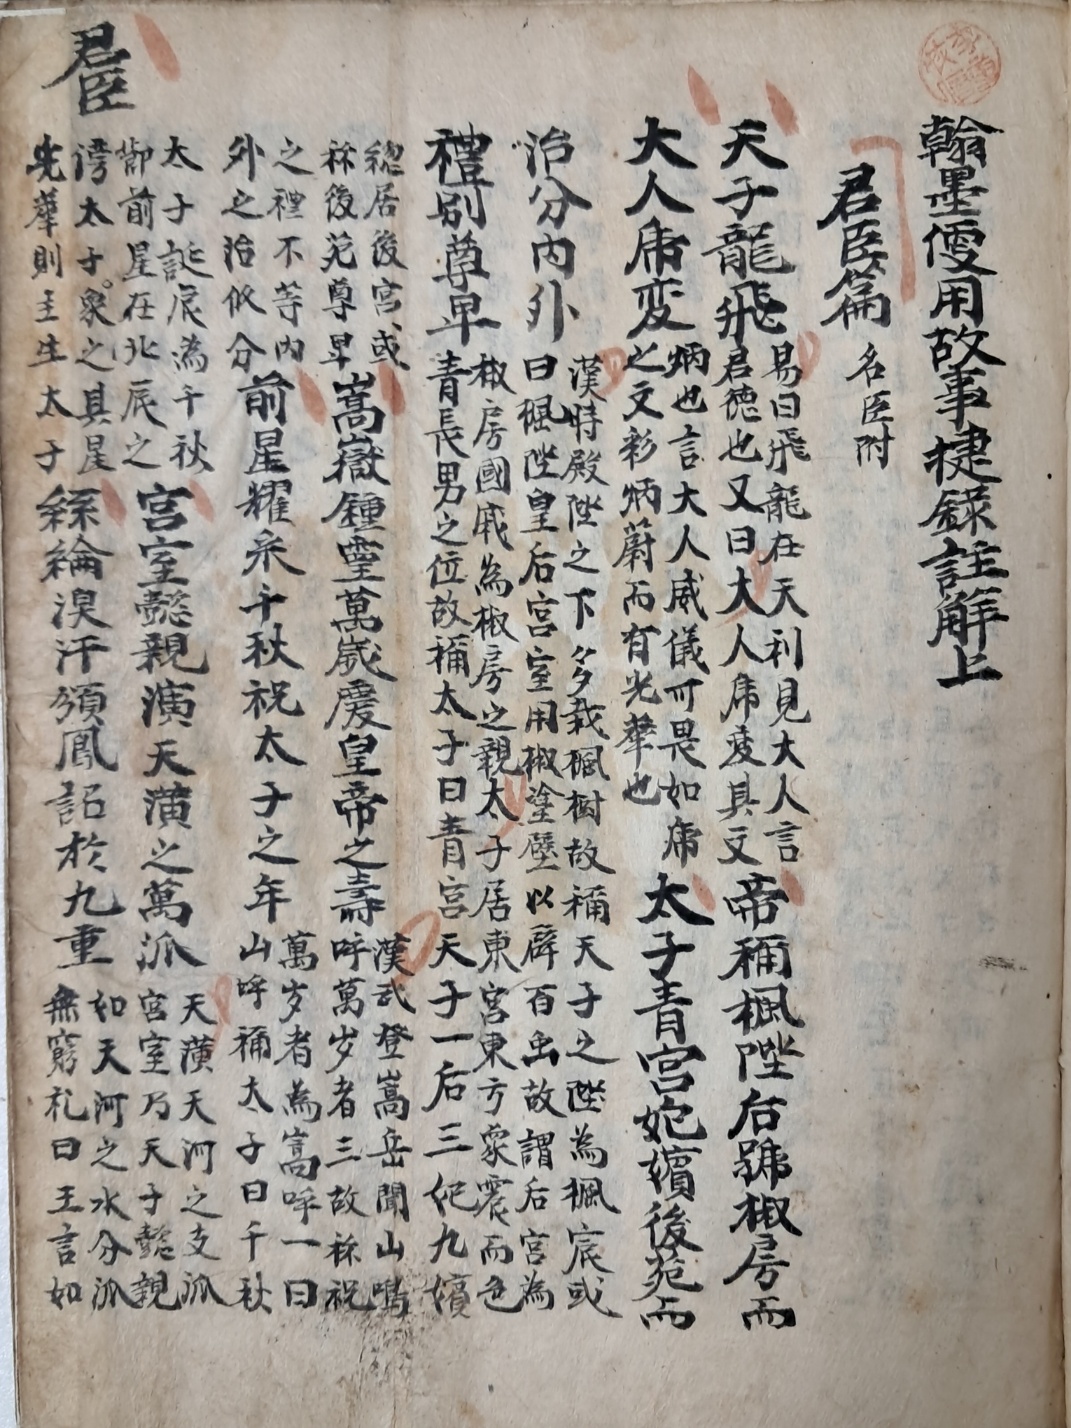 翰墨便用故事捷錄註解上
君臣篇 名臣附
天子龍飛 易曰飛龍在天利見大人言
君德也又曰大人乕变其文 帝稱楓陛后號椒房而
大人乕变 炳也言大人威儀可畏如乕
之文彩炳蔚而有光華也 太子青宮妃嬪後苑而
治分内外 漢時殿陛之下多栽楓樹故稱天子之陛為楓宸或
曰楓陛皇后宮室用椒塗壁以辟百虫故謂后宮為
禮別尊卑 椒房國戚為椒房之親太子居東宮東方象震而色
青長男之位故稱太子曰青宮天子一后三妃九嬪
總居後宮或
称後苑尊卑 嵩嶽鍾靈萬歲慶皇帝之壽 漢武登嵩岳聞山鳴
呼萬岁者三故称祝
之禮不等内
外之治攸分 前星耀采千秋祝太子之年 萬岁者為嵩呼一曰
山呼稱太子曰千秋
太子誕辰為千秋
節前星在北辰之 宮室懿親演天潢之萬派 天潢天河之支派
宮室乃天子懿親
滂太子象之其星
先華則主生太子 絲綸渙汗頒鳳詔於九重 如天河之水分派
無窮礼曰王言如
君臣